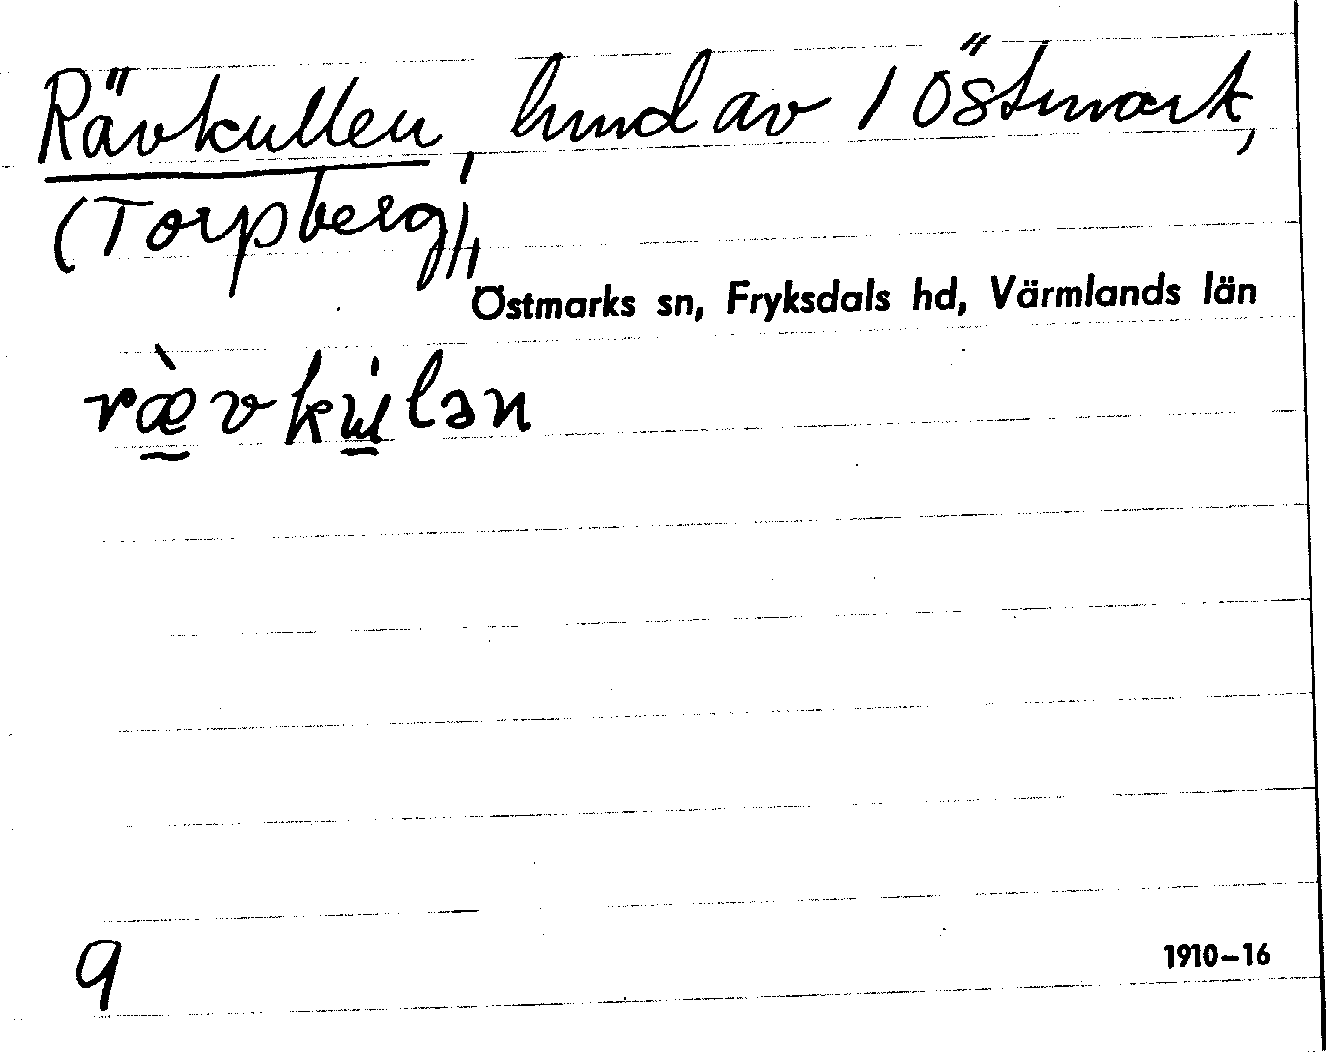 Rävkullen, hmd av 1 Östmark,
(Torpberg),
Östmarks sn, Fryksdals hd, Värmlands län
ræ̀vkɯ̍lən
9
1910–16